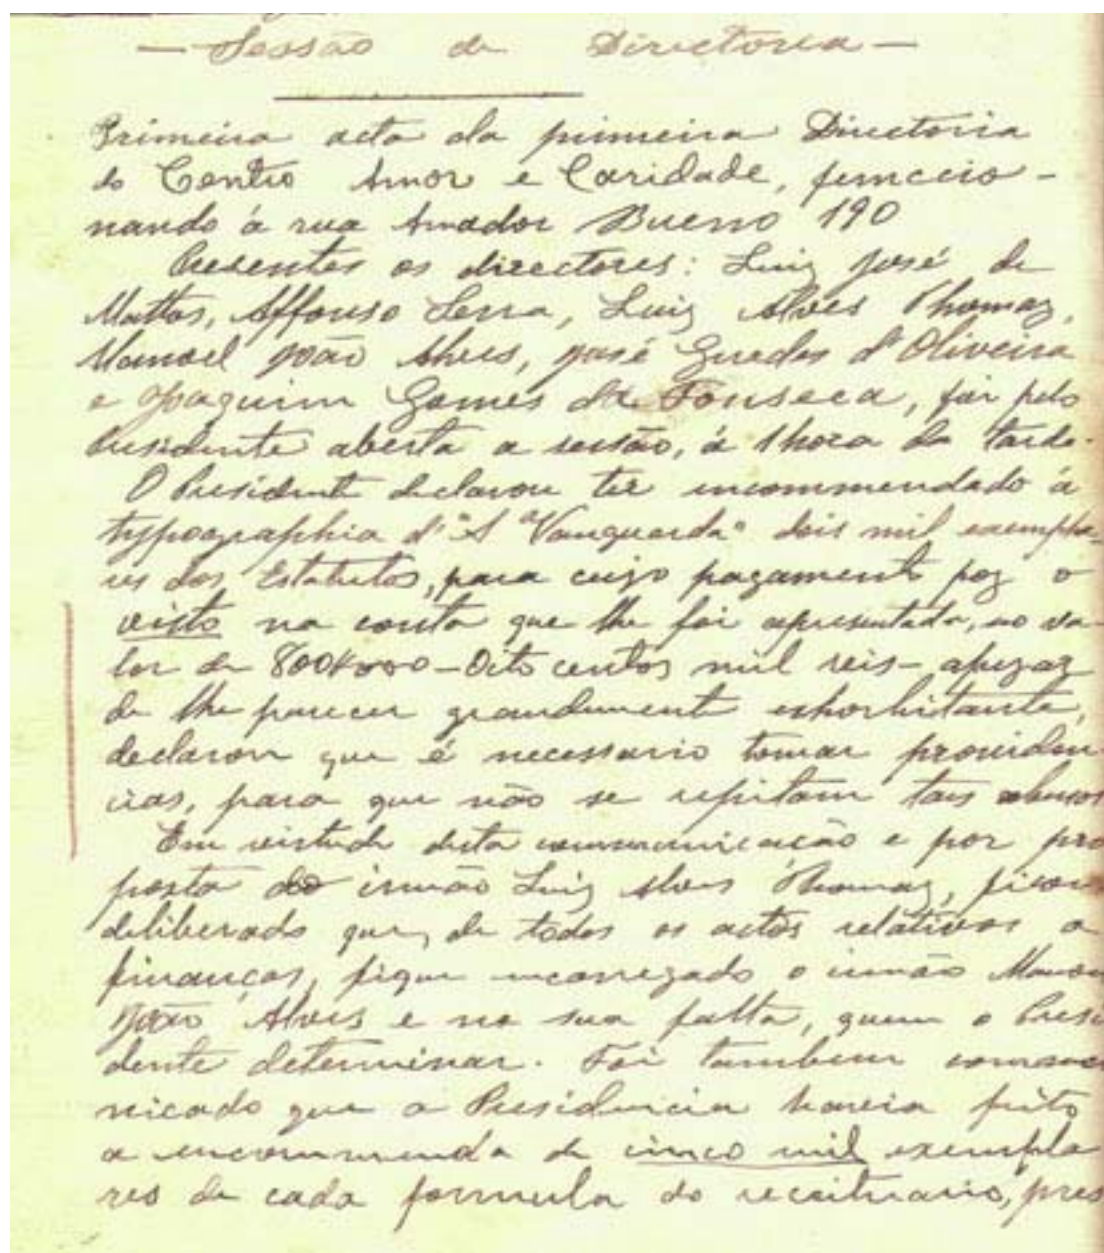 — Sessão de Directoria —
Primeira acta da primeira Directoria
do Centro Amor e Caridade, funccio-
nando á rua Amador Bueno 190
Presentes os directores: Luiz José de
Mattos, Affonso Serra, Luiz Alves Thomaz,
Manoel João Alves, José Guedes d'Oliveira
e Joaquim Gomes da Fonseca, foi pelo
Presidente aberta a sessão, á 1 hora da tarde.
O Presidente declarou ter encommendado á
typographia d'"A Vanguarda" dois mil exempla-
res dos Estatutos, para cujo pagamento poz o
visto na conta que lhe foi apresentada, no va-
lor de 800$000 — Oito centos mil reis — apezar
de lhe parecer grandemente exhorbitante,
declarou que é necessario tomar providen
cias, para que não se repitam taes abusos
Em virtude desta communicação e por pro
posta do irmão Luiz Alves Thomaz, ficou
deliberado que, de todos os actos relativos a
finanças, fique encarregado o irmão Manoe
João Alves e na sua falta, quem o Presi
dente determinar. Foi tambem commu
nicado que a Presidencia havia feito
a encommenda de cinco mil exempla
res de cada formula do receituario, pres